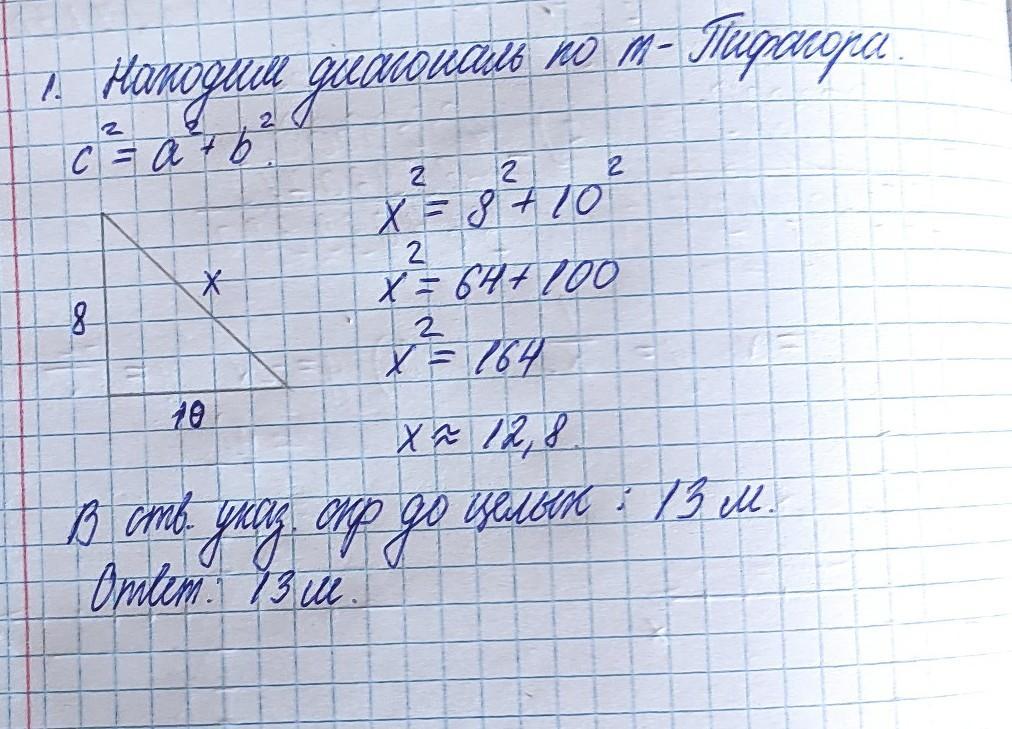 1. Находим диагональ по т- Пифагора.
c² = a² + b².
x² = 8² + 10²
x² = 64 + 100
x² = 164
x ≈ 12,8.
8
x
10
В отв. указ. окр до целых : 13 м.
Ответ: 13 м.